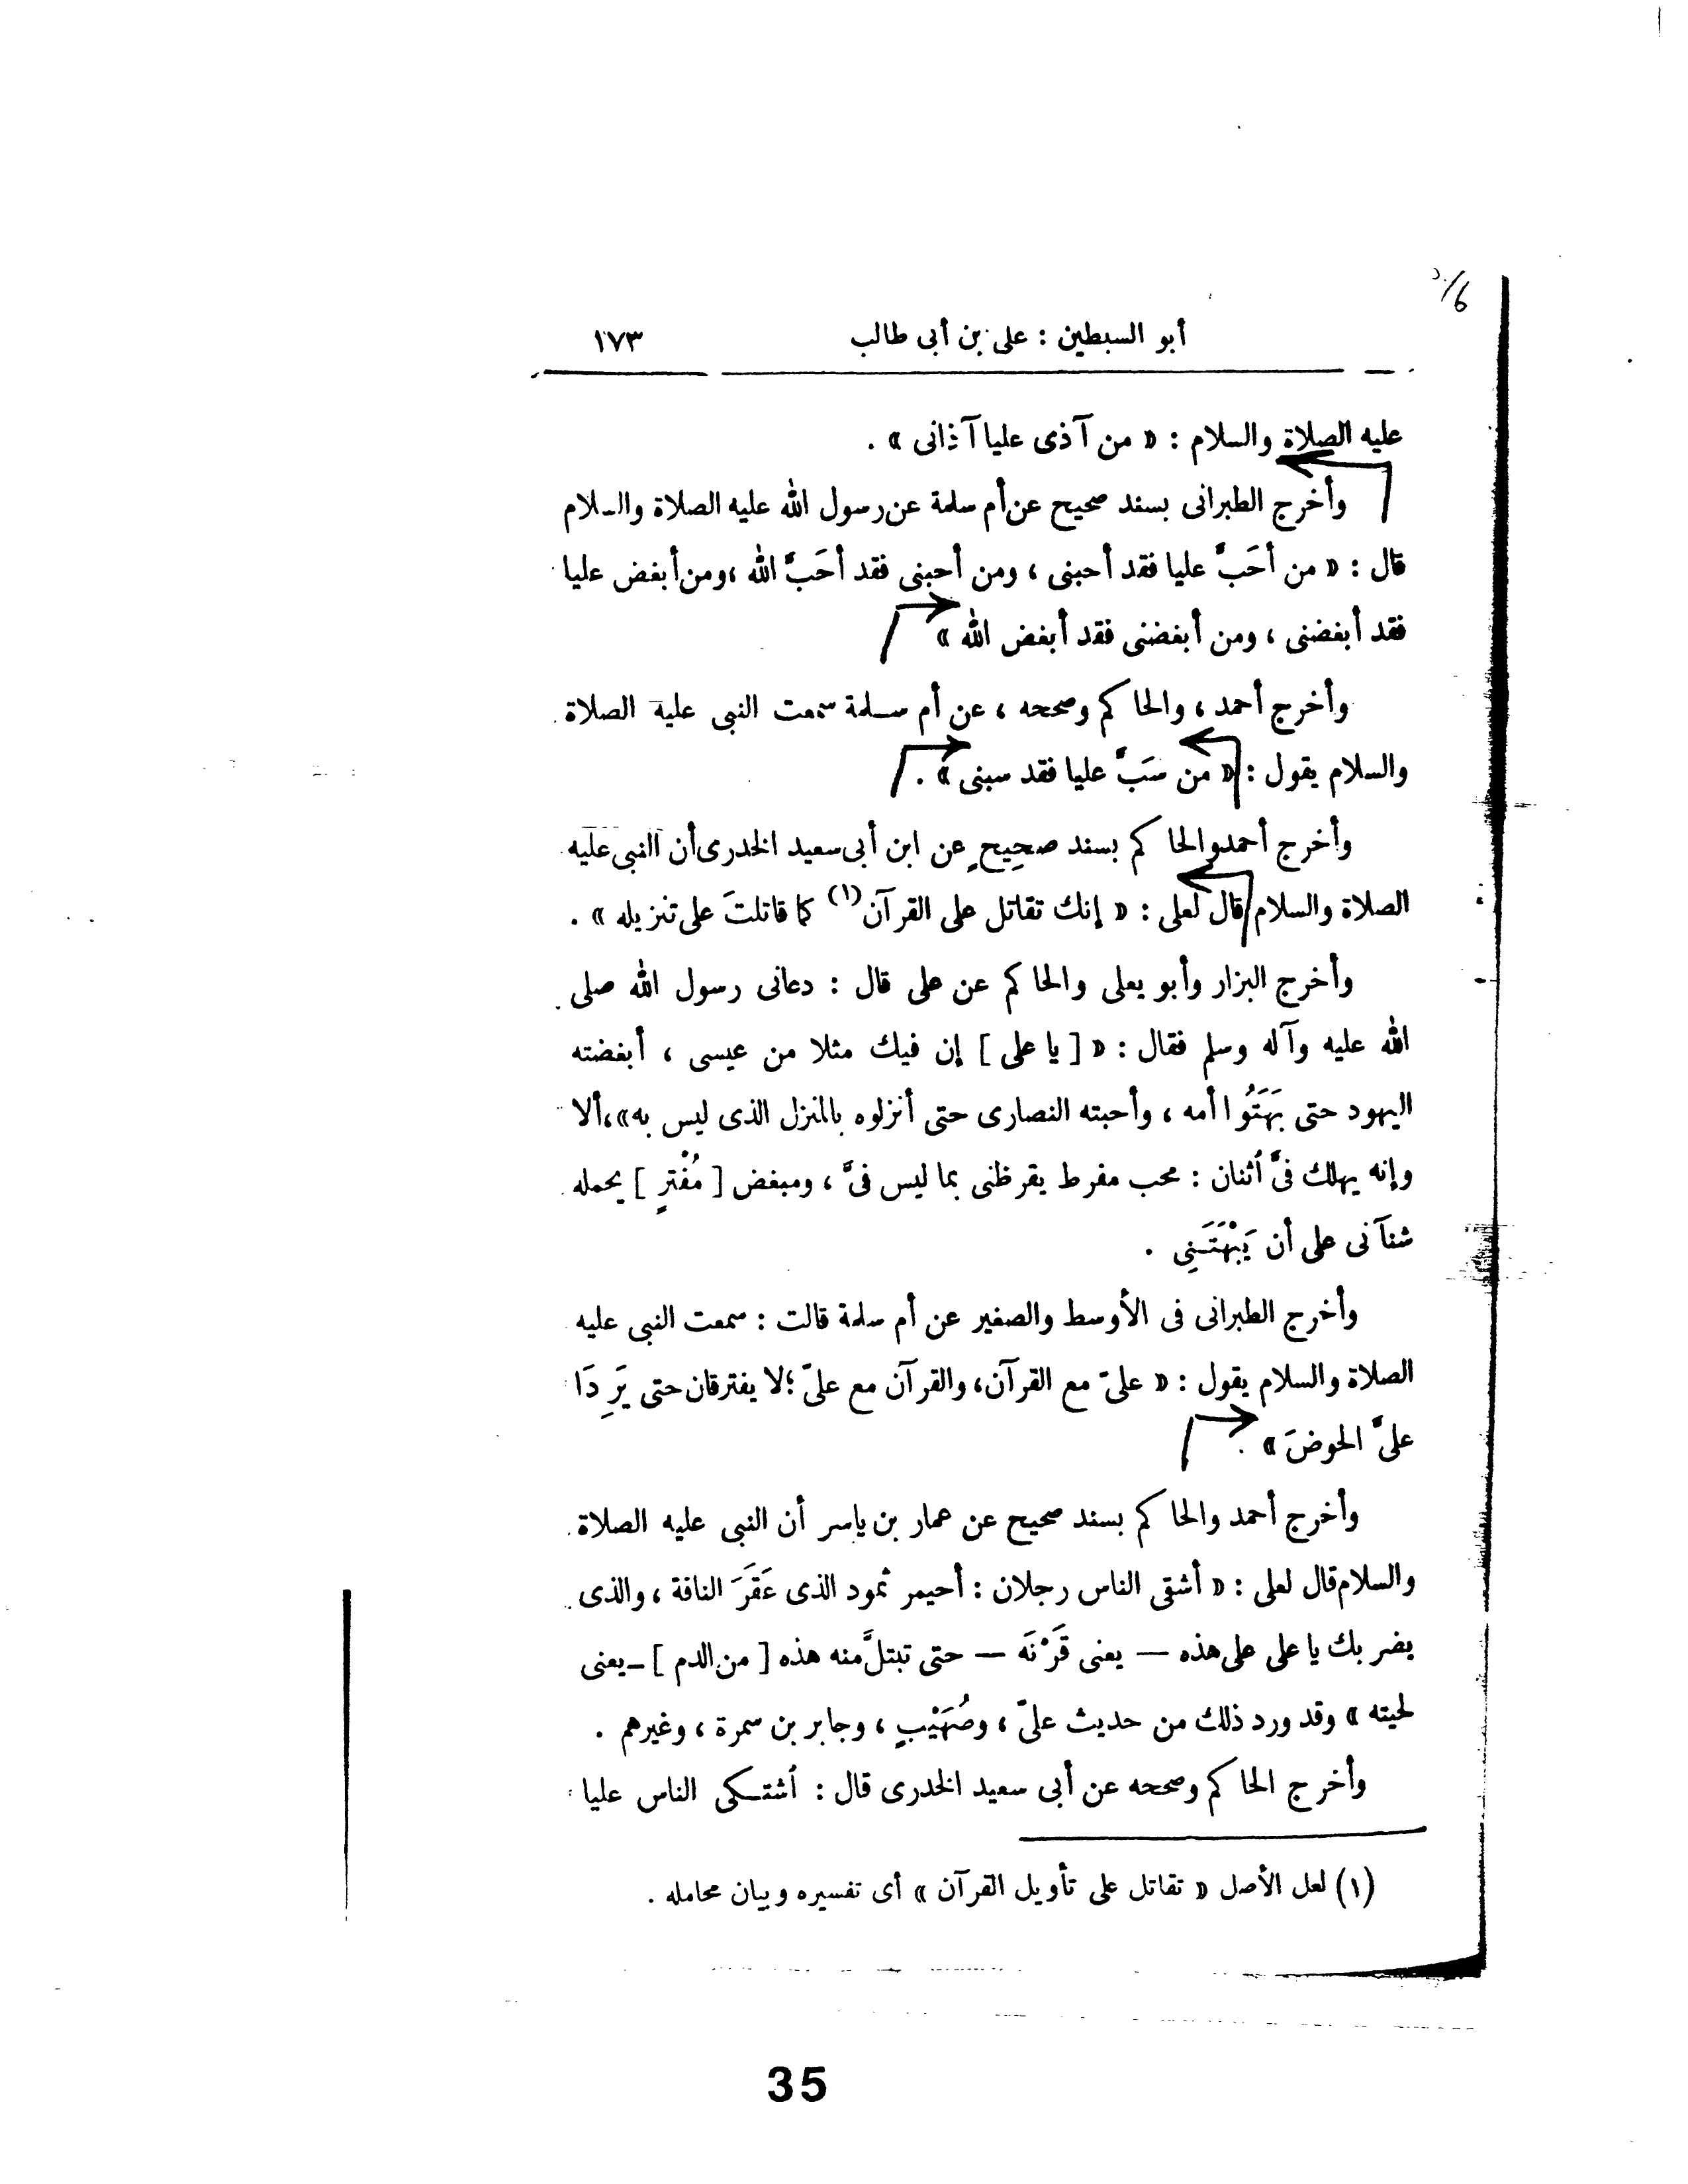 أبو السبطين : على بن أبى طالب ١٧٣
عليه الصلاة والسلام : « من آذى عليا آذانى » .
وأخرج الطبرانى بسند صحيح عن أم سلمة عن رسول الله عليه الصلاة والسلام
قال : « من أحَبَّ عليا فقد أحبنى ، ومن أحبنى فقد أحَبَّ الله ، ومن أبغض عليا
فقد أبغضنى ، ومن أبغضنى فقد أبغض الله »
وأخرج أحمد ، والحاكم وصححه ، عن أم سلمة سمعت النبى عليه الصلاة
والسلام يقول : « من سَبَّ عليا فقد سبنى » .
وأخرج أحمد والحاكم بسند صحِيحٍ عن ابن أبى سعيد الخدرى أن النبى عليه
الصلاة والسلام قال لعلى : « إنك تقاتل على القرآن (١) كما قاتلتَ على تنزيله » .
وأخرج البزار وأبو يعلى والحاكم عن على قال : دعانى رسول الله صلى
الله عليه وآله وسلم فقال : « [ يا على ] إن فيك مثلا من عيسى ، أبغضته
اليهود حتى بَهَتُوا أمه ، وأحبته النصارى حتى أنزلوه بالمنزل الذى ليس به » ، ألا
وإنه يهلك فىَّ اُثنان : محب مفرط يقرظنى بما ليس فىَّ ، ومبغض [ مُفْترٍ ] يحمله
شنآنى على أن يَبْهَتَنِى .
وأخرج الطبرانى فى الأوسط والصغير عن أم سلمة قالت : سمعت النبى عليه
الصلاة والسلام يقول : « علىّ مع القرآن ، والقرآن مع علىّ ؛ لا يفترقان حتى يَرِدَا
علىَّ الحوضَ » .
وأخرج أحمد والحاكم بسند صحيح عن عمار بن ياسر أن النبى عليه الصلاة
والسلام قال لعلى : « أشقى الناس رجلان : أحيمر ثمود الذى عَقَرَ الناقة ، والذى
يضربك يا على على هذه — يعنى قَرْنَه — حتى تبتلَّ منه هذه [ من الدم ] — يعنى
لحيته » وقد ورد ذلك من حديث علىّ ، وصُهَيْبٍ ، وجابر بن سمرة ، وغيرهم .
وأخرج الحاكم وصححه عن أبى سعيد الخدرى قال : اُشتكى الناس عليا
(١) لعل الأصل « تقاتل على تأويل القرآن » أى تفسيره وبيان محامله .
35